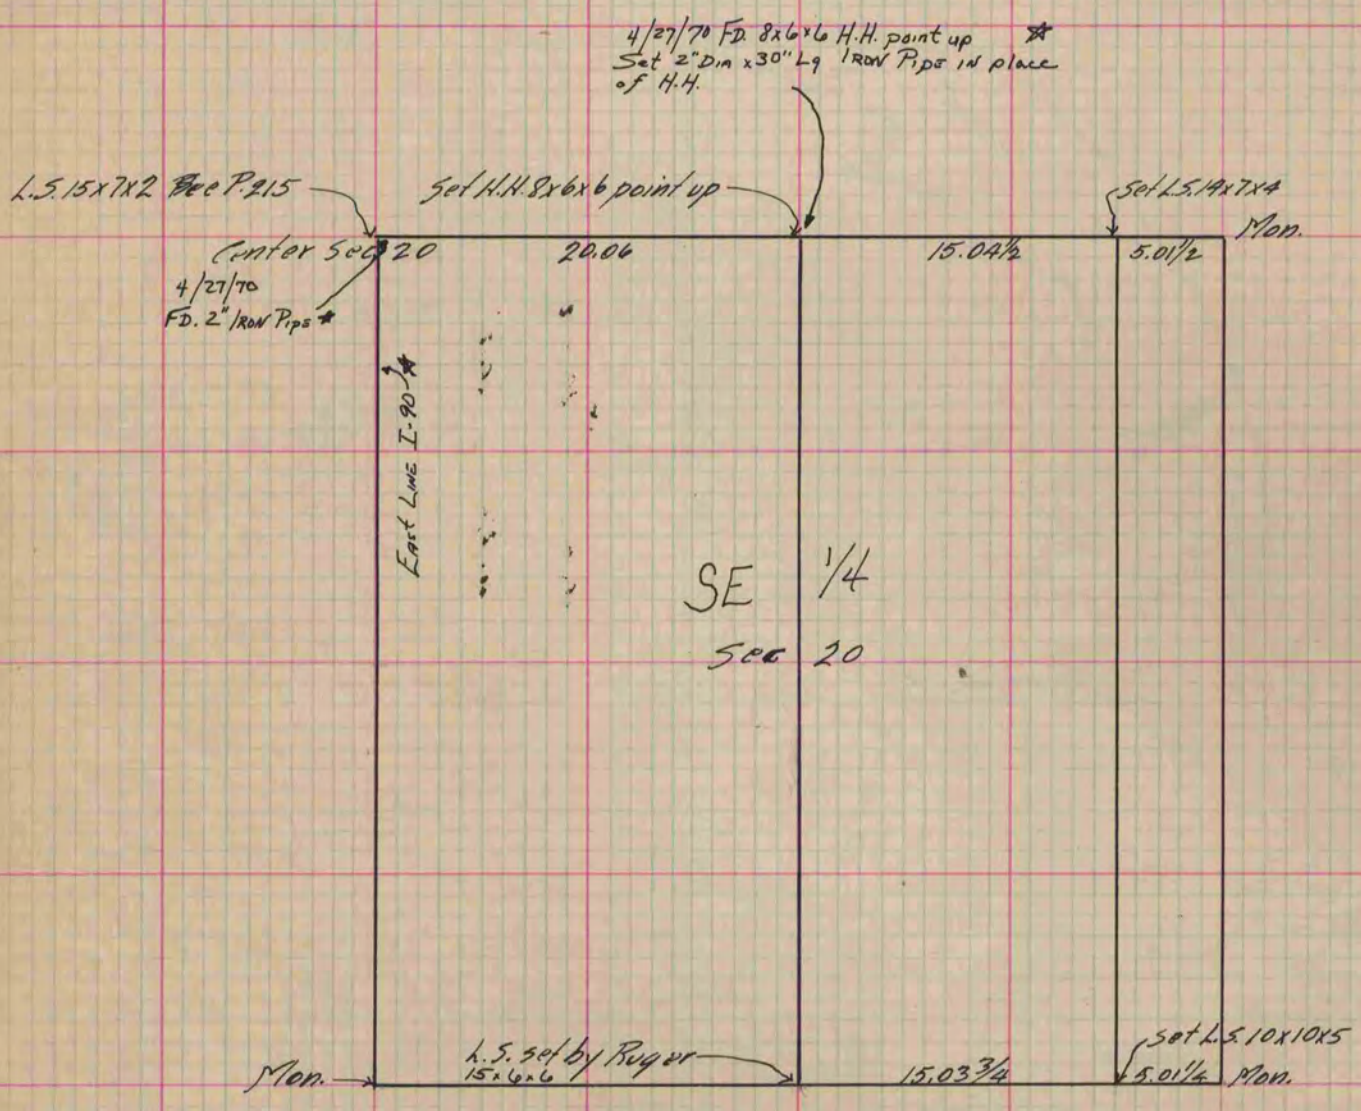 4/27/70 FD. 8x6x6 H.H. point up
Set 2" Dia x 30" Lg IRON PIPE IN place
of H.H.
L.S. 15x7x2 See P. 215
Set H.H. 8x6x6 point up
Set L.S. 14x7x4
Mon.
Center Sec 20
20.06
15.04 1/2
5.01 1/2
4/27/70
FD. 2" IRON Pipe
East Line I-90
SE 1/4
Sec 20
L.S. set by Ruger
15x6x6
Set L.S. 10x10x5
Mon.
15.03 3/4
5.01 1/4
Mon.